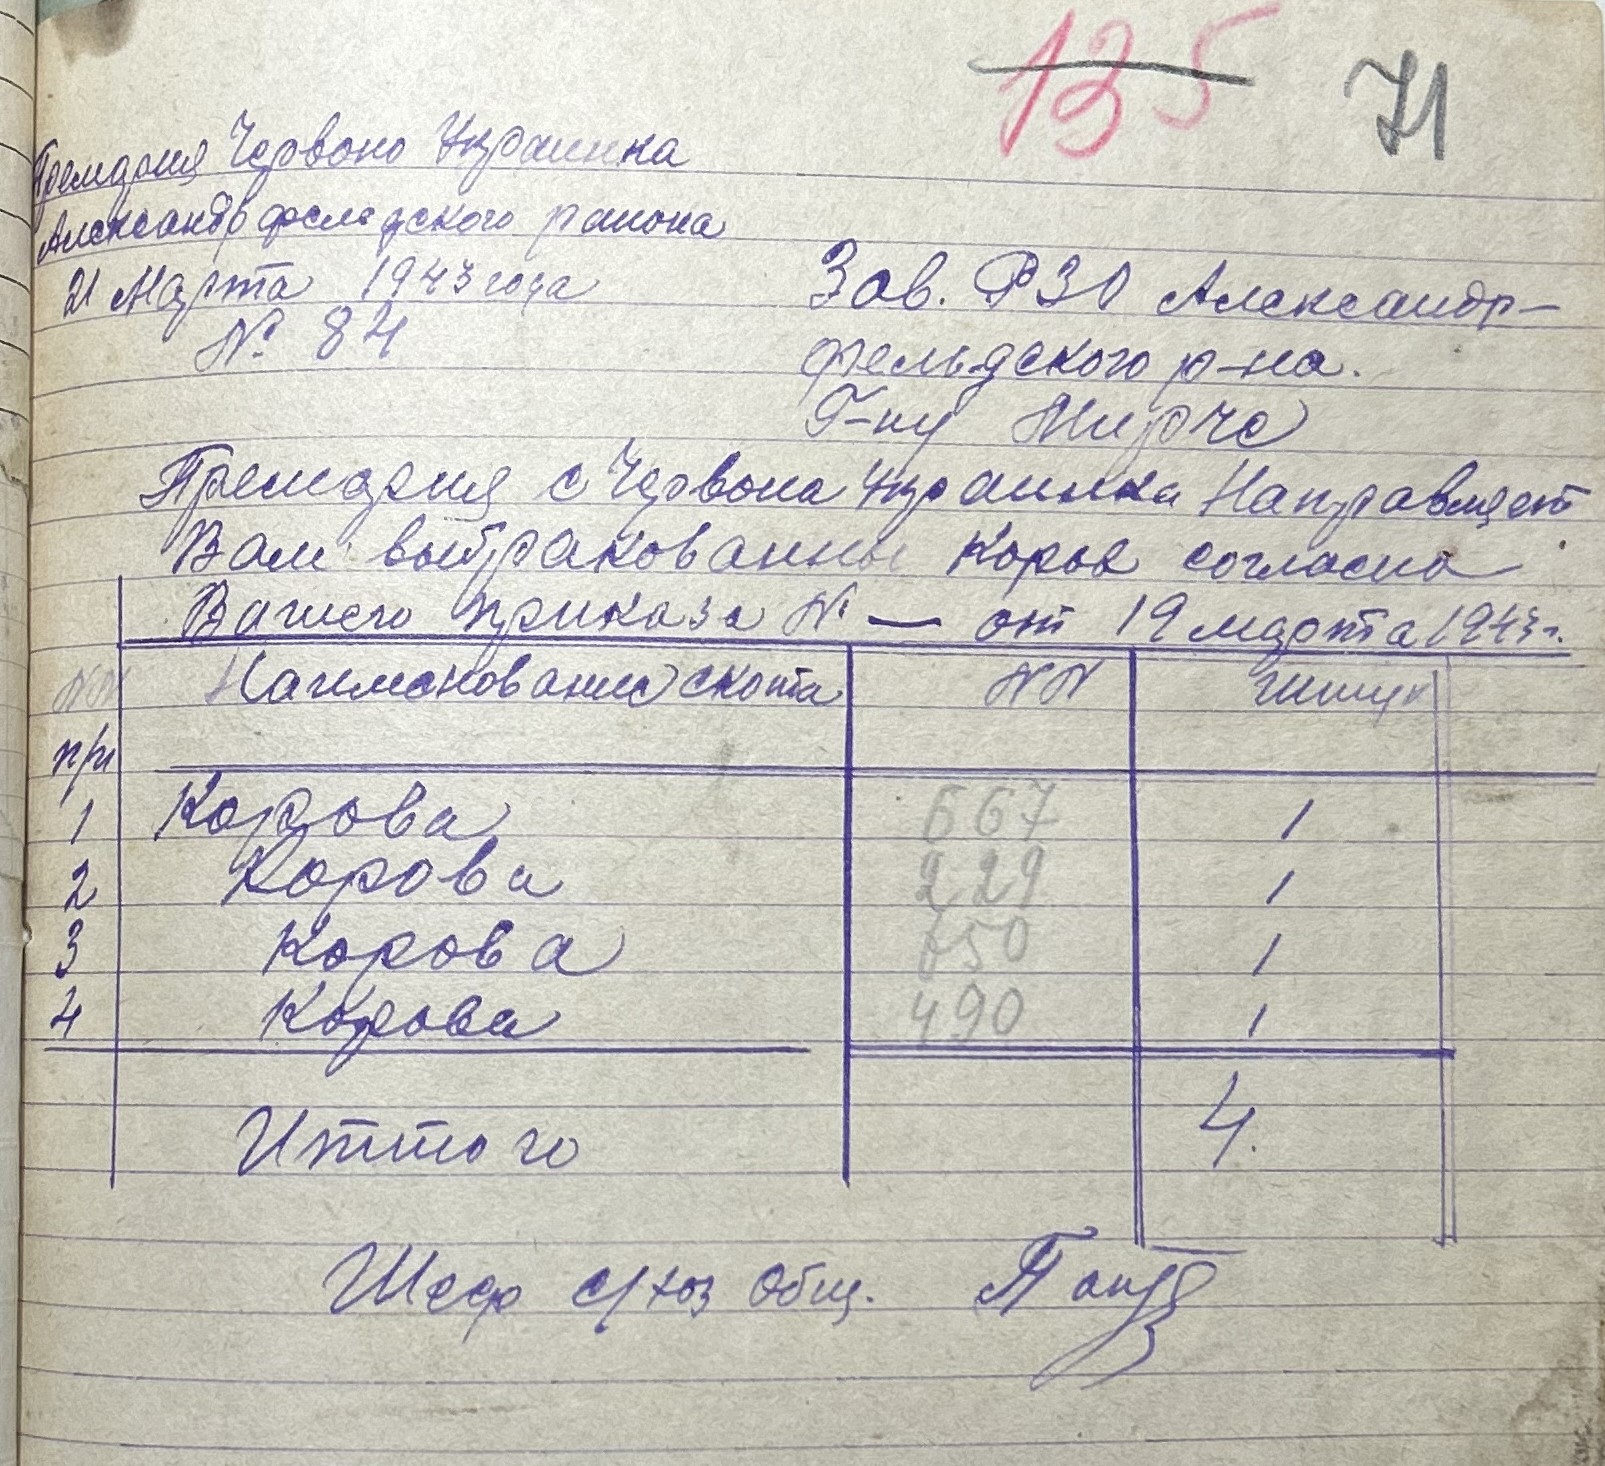 135 71
Премария Червоно Украинка
Александрфельдского района
21 Марта 1943 года
№ 84
Зав. РЗО Александр-
фельдского р-на.
Г-ну Мирче
Премария с Червона Украинка Направляет
Вам выбракованны Коров согласно
Вашего приказа № — от 19 марта 1943 г.
NN Наименование скота NN Штук
п/п
1 Корова 667 1
2 Корова 229 1
3 Корова 650 1
4 Корова 490 1
Иттого 4.
Шеф с/хоз Общ.